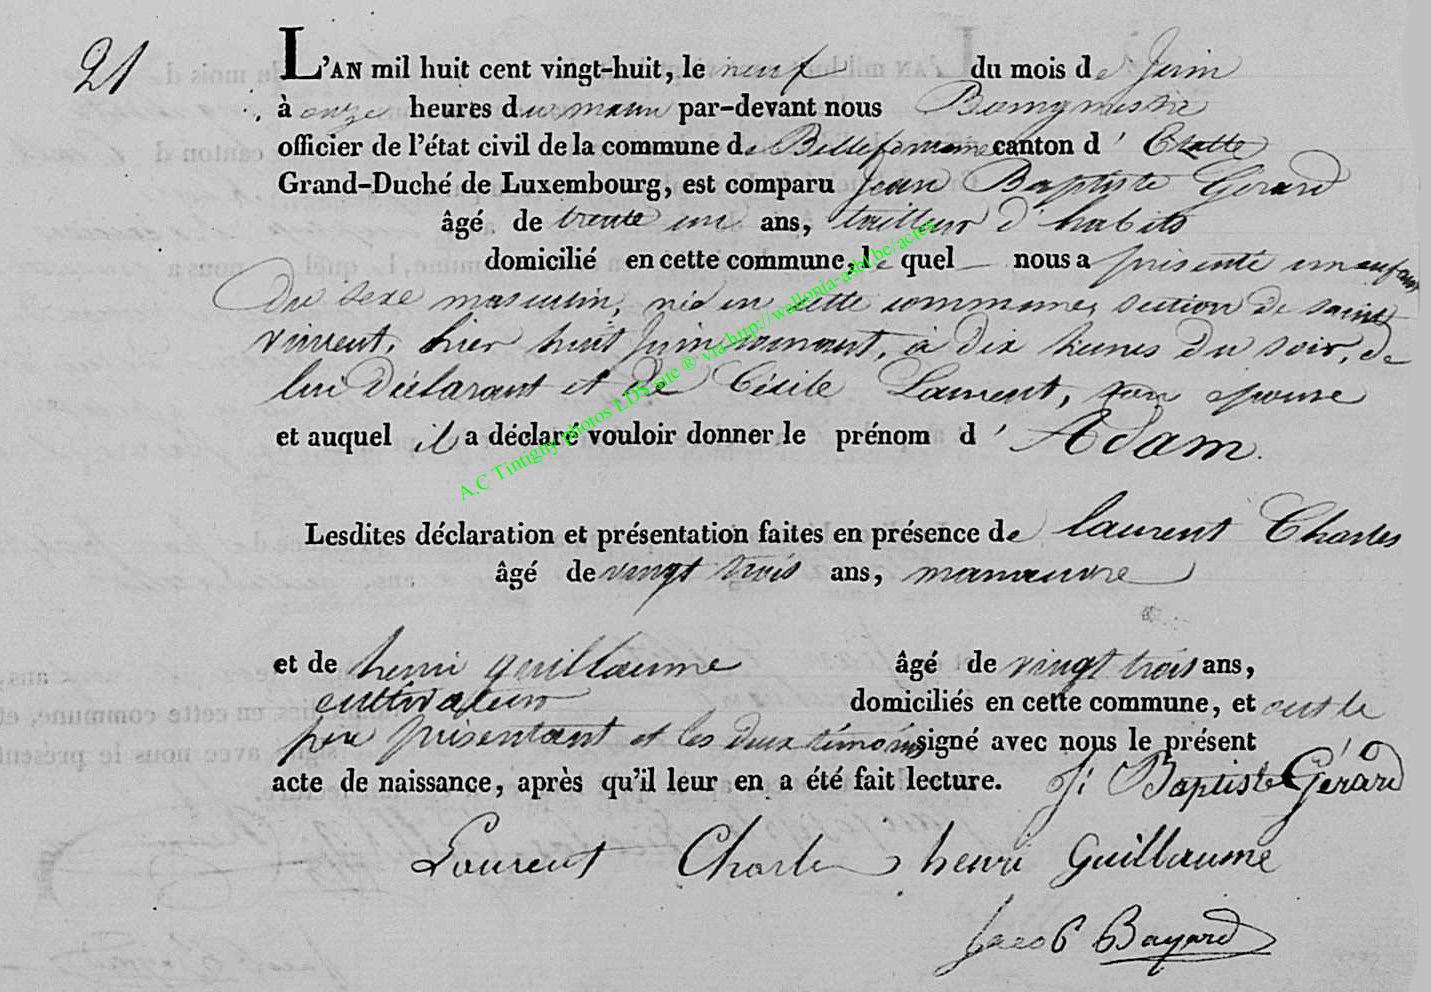 21
L'AN mil huit cent vingt-huit, le neuf du mois de Juin
à onze heures du matin par-devant nous Bourgmestre
officier de l'état civil de la commune de Bellefontaine canton d' Etalle
Grand-Duché de Luxembourg, est comparu Jean Baptiste Gerard
âgé de trente un ans, tailleur d'habits
domicilié en cette commune, le quel nous a présenté un enfant
du sexe masculin, né en cette commune, section de saint
vincent, hier huit Juin courant, à dix heures du soir, de
lui Déclarant et de Cécile Laurent, son epouse
et auquel il a déclaré vouloir donner le prénom d' Adam.
A.C Tintigny photos LDS site ® via http://wallonia-asbl.be/actes
Lesdites déclaration et présentation faites en présence de laurent Charles
âgé de vingt trois ans, manœuvre
et de henri guillaume âgé de vingt trois ans,
cultivateur domiciliés en cette commune, et ont le
père présentant et les deux témoins signé avec nous le présent
acte de naissance, après qu'il leur en a été fait lecture. J: Baptiste Gérard
Laurent Charles henri Guillaume
Jacob Bayard